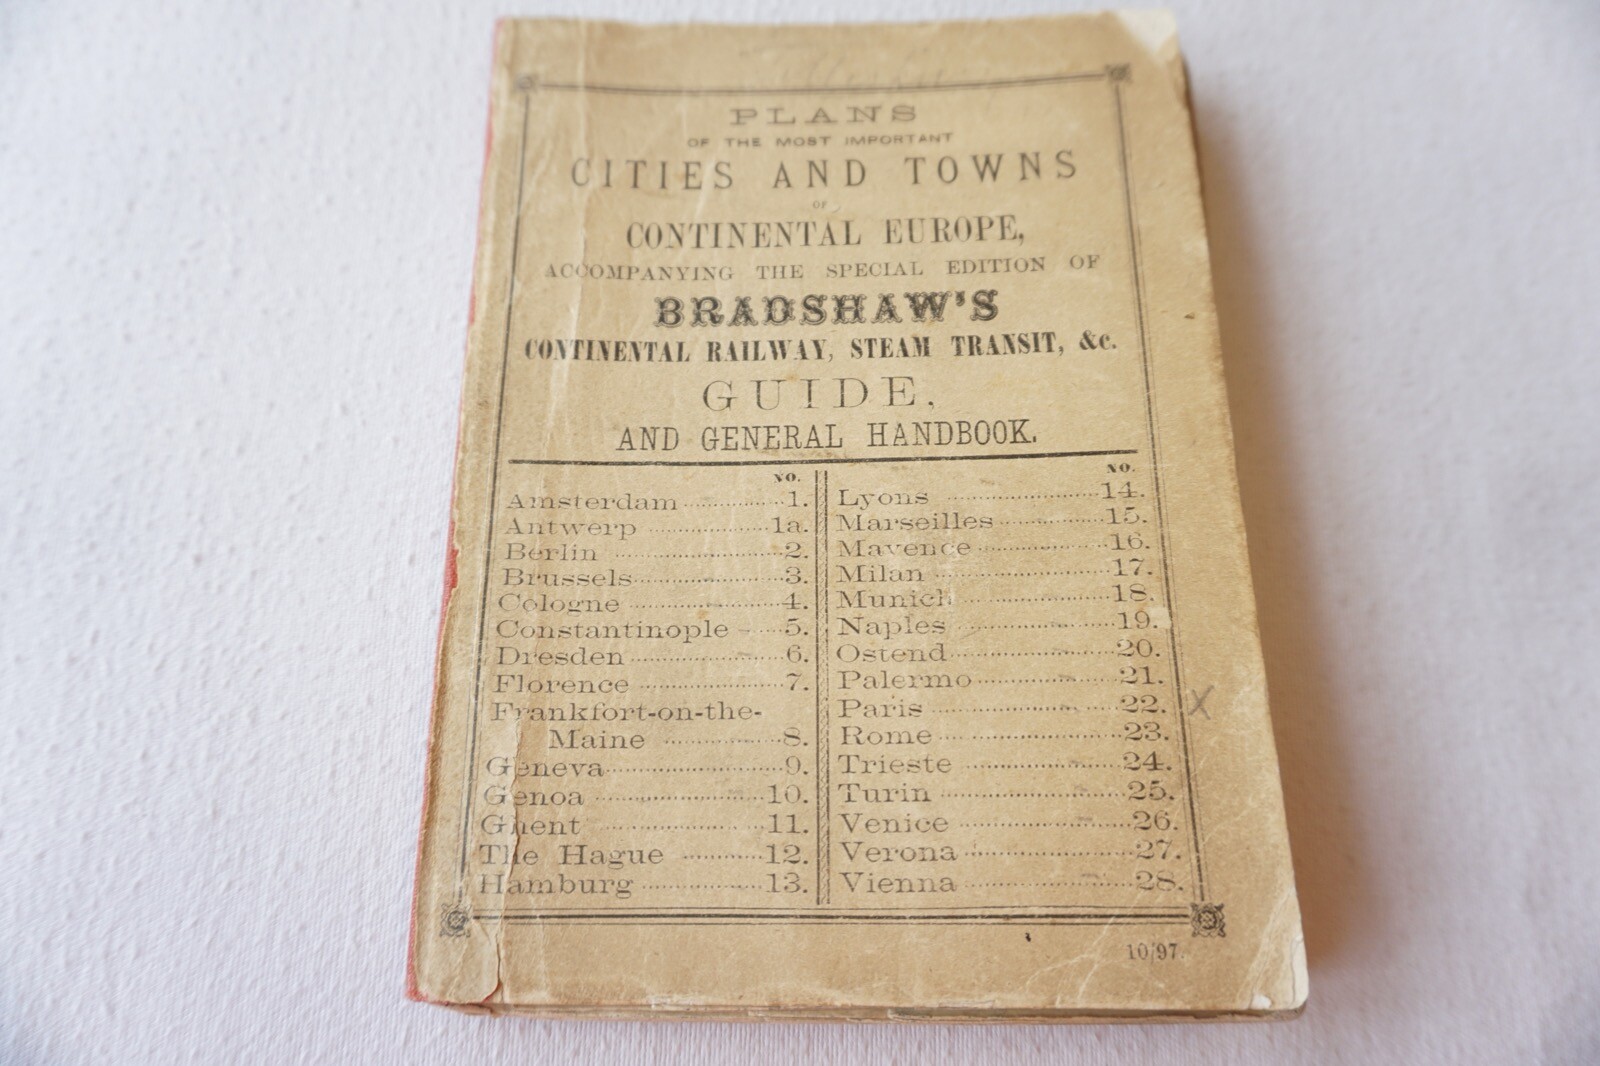 PLANS
OF THE MOST IMPORTANT
CITIES AND TOWNS
OF
CONTINENTAL EUROPE,
ACCOMPANYING THE SPECIAL EDITION OF
BRADSHAW'S
CONTINENTAL RAILWAY, STEAM TRANSIT, &c.
GUIDE,
AND GENERAL HANDBOOK.
NO.
Amsterdam 1.
Antwerp 1a.
Berlin 2.
Brussels 3.
Cologne 4.
Constantinople 5.
Dresden 6.
Florence 7.
Frankfort-on-the-
Maine 8.
Geneva 9.
Genoa 10.
Ghent 11.
The Hague 12.
Hamburg 13.
NO.
Lyons 14.
Marseilles 15.
Mayence 16.
Milan 17.
Munich 18.
Naples 19.
Ostend 20.
Palermo 21.
Paris 22. X
Rome 23.
Trieste 24.
Turin 25.
Venice 26.
Verona 27.
Vienna 28.
10/97.